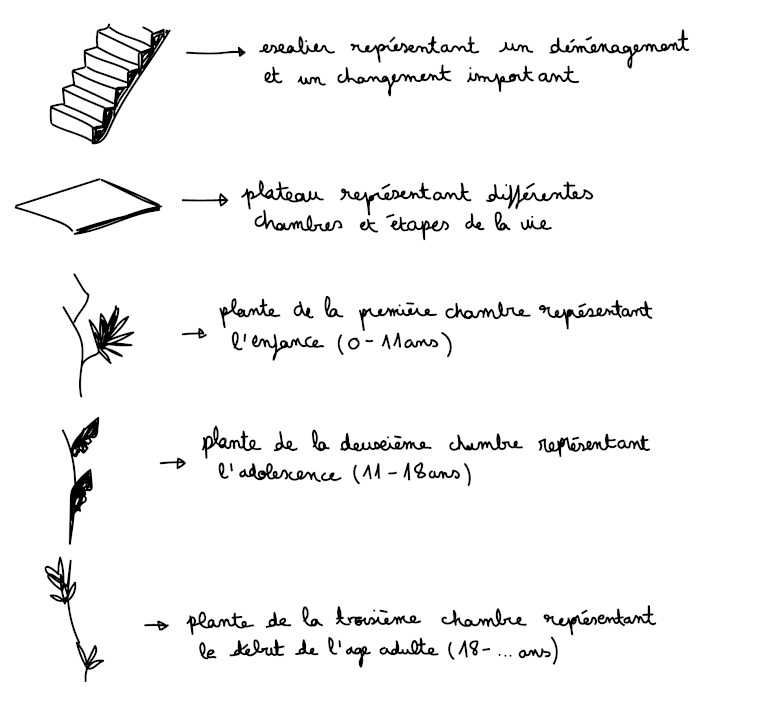 escalier représentant un déménagement
et un changement important
plateau représentant différentes
chambres et étapes de la vie
plante de la première chambre représentant
l'enfance (0-11ans)
plante de la deuxième chambre représentant
l'adolescence (11-18ans)
plante de la troisième chambre représentant
le début de l'age adulte (18-... ans)